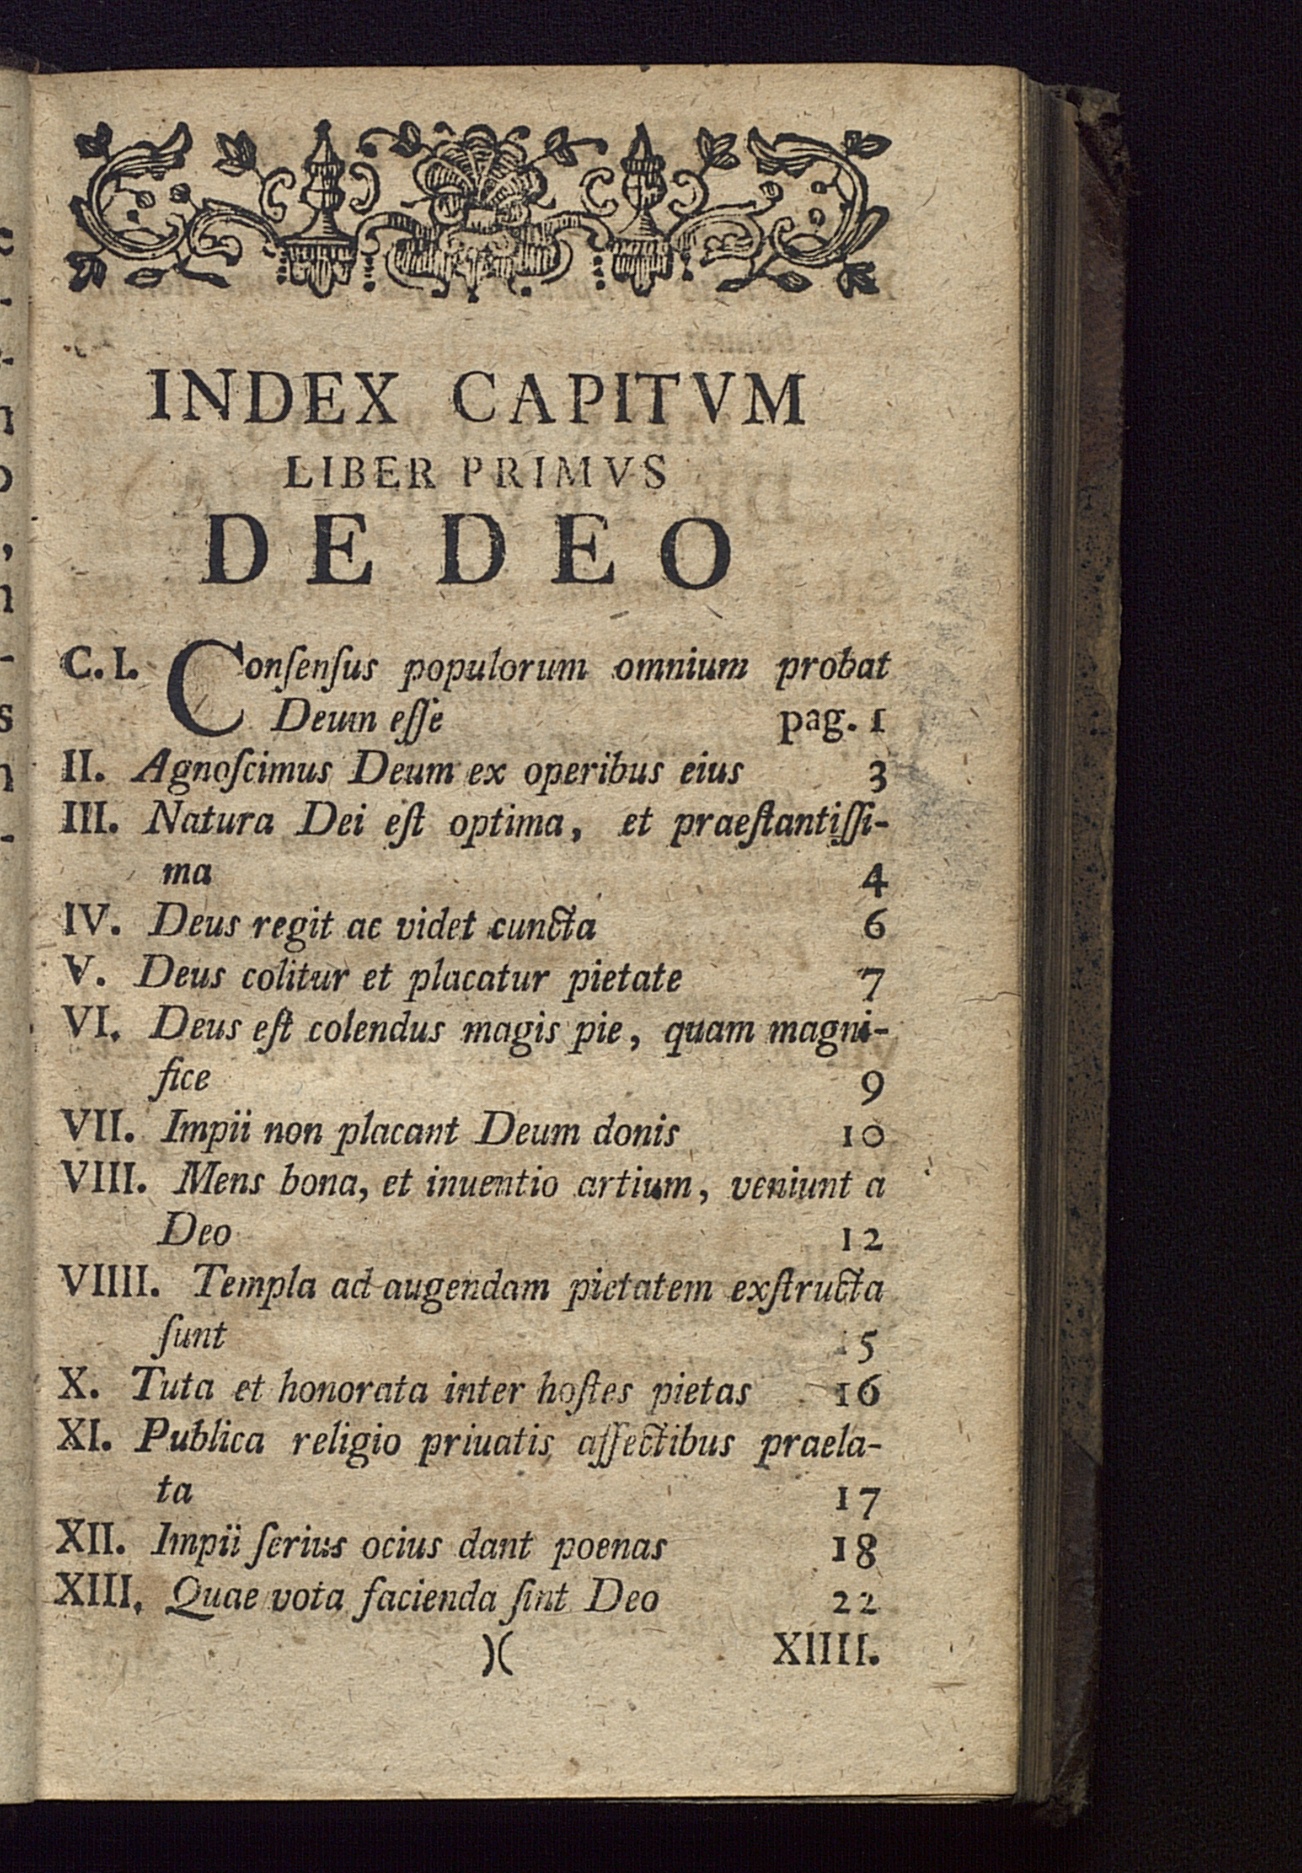 INDEX CAPITVM
LIBER PRIMVS
DE DEO
C. I. Conſenſus populorum omnium probat
Deum eſſe pag. 1
II. Agnoſcimus Deum ex operibus eius 3
III. Natura Dei eſt optima, et praeſtantiſſi-
ma 4
IV. Deus regit ac videt cuncta 6
V. Deus colitur et placatur pietate 7
VI. Deus eſt colendus magis pie, quam magni-
fice 9
VII. Impii non placant Deum donis 10
VIII. Mens bona, et inuentio artium, veniunt a
Deo 12
VIIII. Templa ad augendam pietatem exſtructa
ſunt 15
X. Tuta et honorata inter hoſtes pietas 16
XI. Publica religio priuatis affectibus praela-
ta 17
XII. Impii ſerius ocius dant poenas 18
XIII. Quae vota facienda ſint Deo 22
)( XIIII.